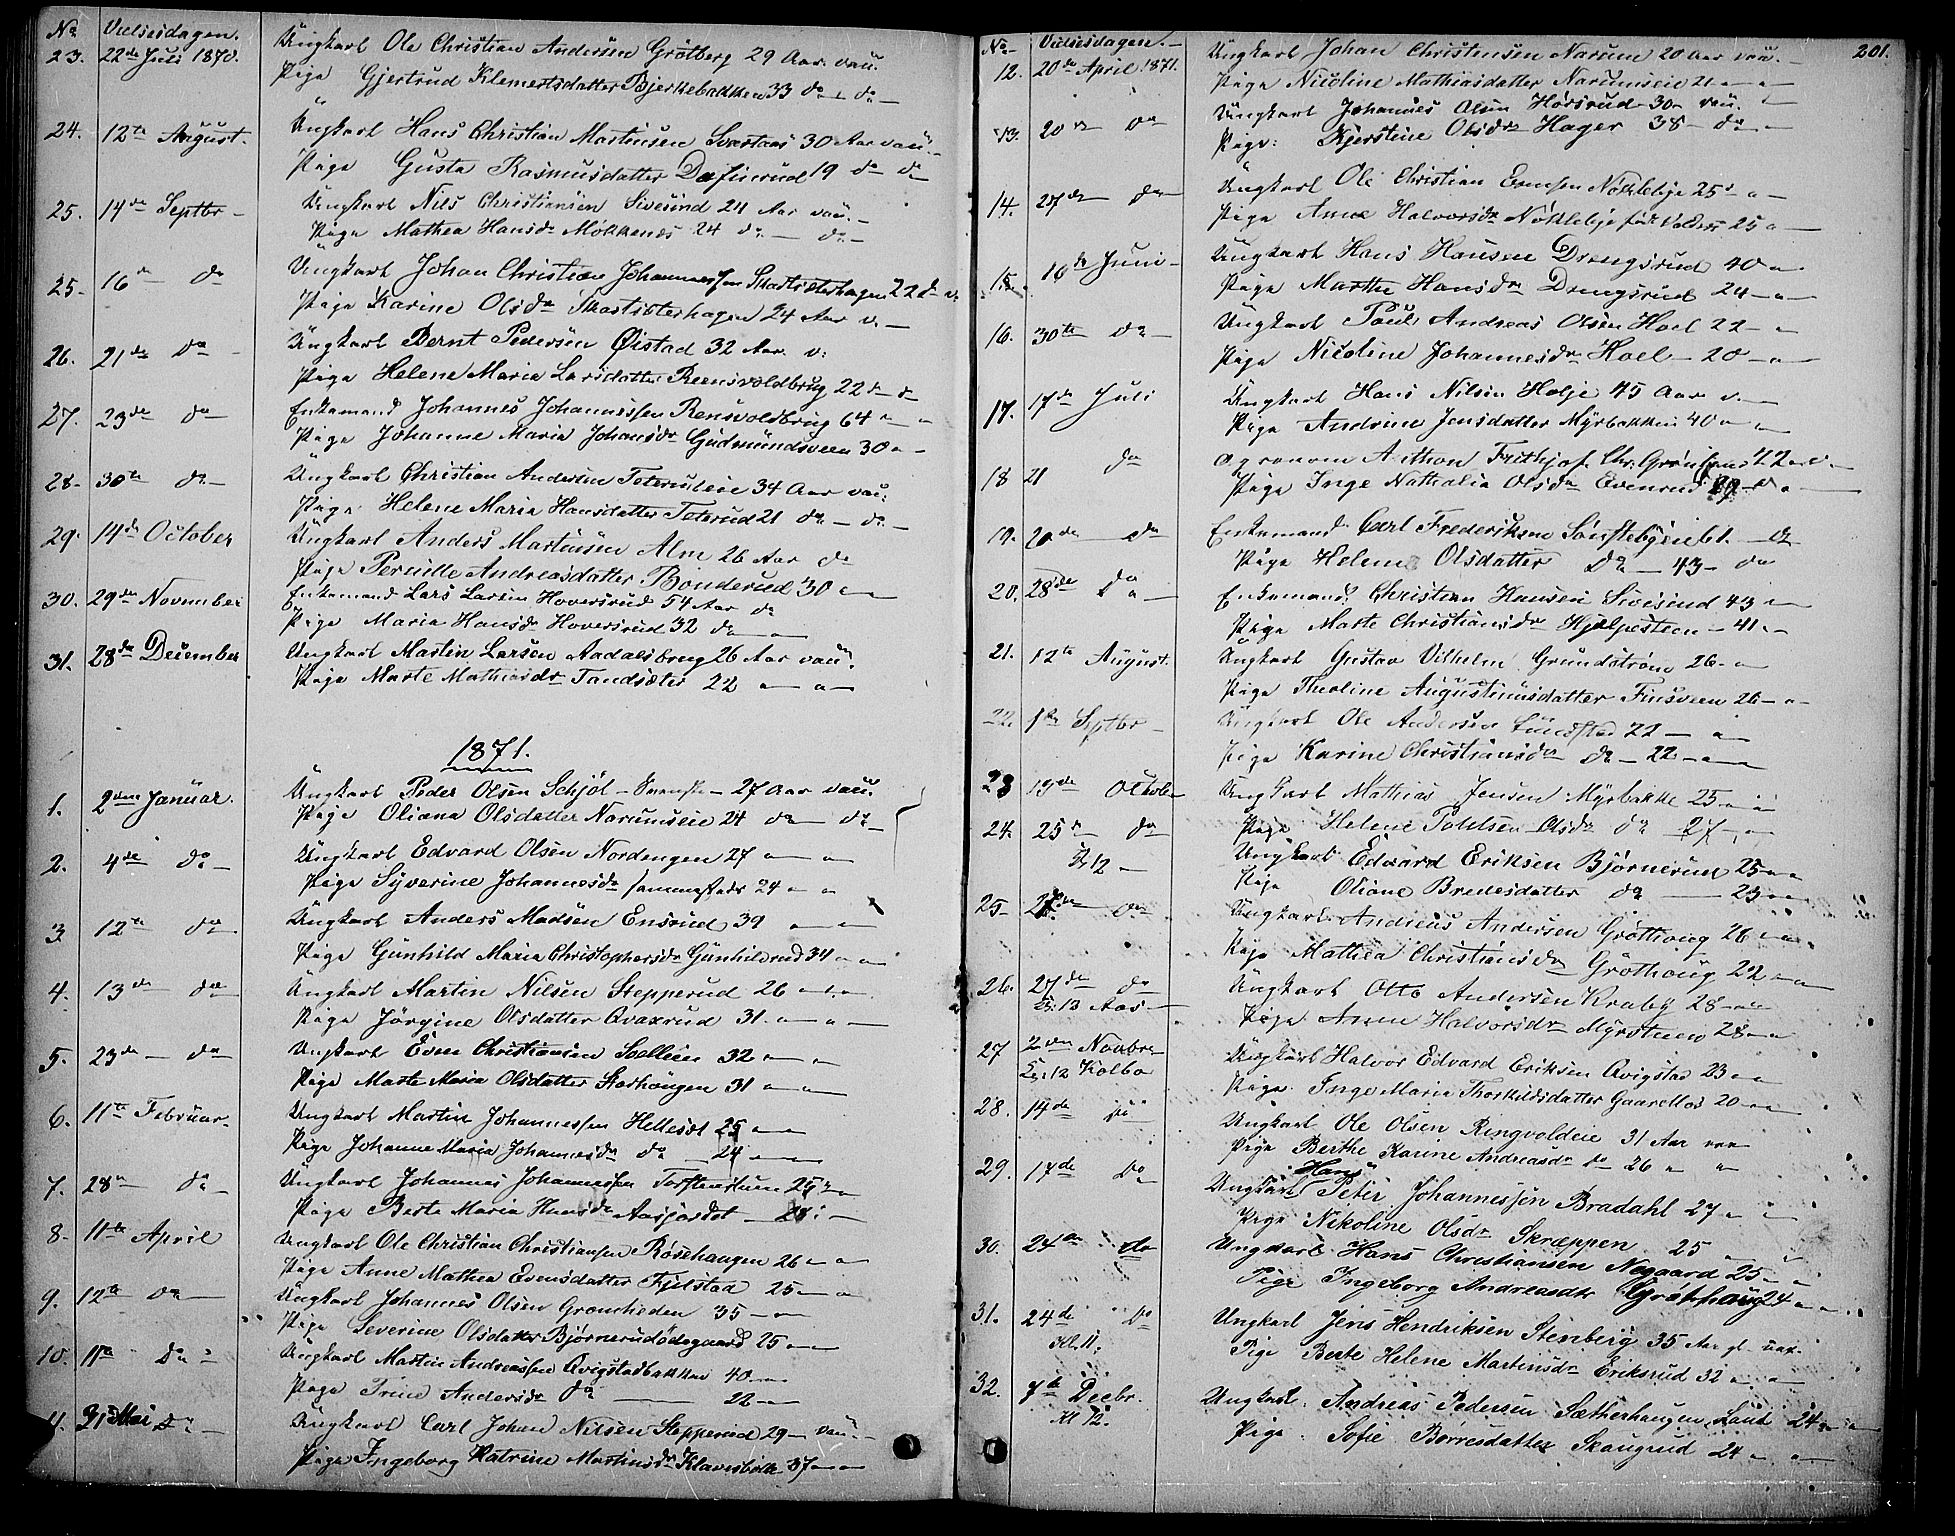 No Vielsesdagen.
23. 22de Juli 1870. Ungkarl Ole Christian Andersen Grøtberg 29 Aar. vau.
Pige Gjertrud Klemertsdatter Bjerkebakken 33 do do
24. 12te August. Ungkarl Hans Christian Martinsen Svartaas 30 Aar vau.
Pige Gusta Rasmusdatter Dafinrud 19 do do
25. 14de Septbr Ungkarl Nils Christiansen Sivesind 24 Aar vau.
Pige Mathea Hansdr Møkkenes 24 do do
25. 16de do Ungkarl Johan Christian Johannessen Skartsæterhagen 22 do v.
Pige Karine Olsdr Skartsæterhagen 24 Aar v.
26. 21de do Ungkarl Bernt Pedersen Øistad 32 Aar v.
Pige Helene Maria Larsdatter Reensvoldbrug 22 d d
27. 23de do Enkemand Johannes Johannessen Rensvoldbrug 64
Pige Johanne Maria Johansdr Gudmundsveen 30
28. 30te do Ungkarl Christian Andersen Toterudeie 34 Aar vau.
Pige Helene Maria Hansdatter Toterud 21 do do
29. 14de October Ungkarl Anders Martinsen Alm 26 Aar do
Pige Pernille Andreasdatter Bønderud 30
30. 29de November Enkemand Lars Larsen Hoversrud 54 Aar do
Pige Maria Hansdr Hoversrud 32 do
31. 28de December Ungkarl Martin Larsen Aadalsbrug 26 Aar vau.
Pige Marte Mathiasdr Tandsæter 22
1871.
1. 2den Januar. Ungkarl Peder Olsen Schjøl 27 Aar vau.
Pige Oliana Olsdatter Narumseie 24 do do
2. 4de do Ungkarl Edvard Olsen Nordengen 27
Pige Syverine Johannesdr Sammestads 24
3. 12te do Ungkarl Anders Madsen Ensrud 39
Pige Gunhild Maria Christophersdr Gunhildrud 34
4. 13de do Ungkarl Martin Nilsen Stepperud 26
Pige Jørgine Olsdatter Qvaxrud 31
5. 23de do Ungkarl Even Christiansen Sollien 32
Pige Marte Maria Olsdatter Starhaugen 31
6. 11te Februar Ungkarl Martin Johannessen Hellesdt 25
Pige Johanne Maria Johannesdr do 24
7. 28de do Ungkarl Johannes Johannessen 25
Pige Berte Maria Hansdr Aasjordet
8. 11te April Ungkarl Ole Christian Christiansen Røsehaugen 26
Pige Anne Mathea Evensdatter Fjelstad 25
9. 12te do Ungkarl Johannes Olsen Grømheden 35
Pige Severine Olsdatter Bjørnerudødegaard 25
10. 11te do Ungkarl Martin Andreassen Qvigstadbakken 40
Pige Trine Andersdr do 22
11. 31 Mai do Ungkarl Carl Johan Nilsen Stepperud 29 vau.
Pige Ingeborg Katrine Martinsdr Klavesbøle 37
201.
No Vielsesdagen.
12. 20de April 1871. Ungkarl Johan Christensen Narum 20 Aar vau.
Pige Nicoline Mathiasdatter Narumseie 21
13. 20de do Ungkarl Johannes Olsen Hørsrud 30 vau.
Pige: Kjerstine Olsdr Hager 38 do
14. 27de do Ungkarl Ole Christian Evensen Nøkleby 25
Pige Anne Halvorsdr Nøkleby født Valdres 25
15. 10de Juni Ungkarl Hans Hansen Drengsrud 40
Pige Marthe Hansdr Drengsrud 24
16. 30te do Ungkarl Paul Andreas Olsen Hoel 22
Pige Nicoline Johannesdr Hoel 20
17. 17de Juli Ungkarl Hans Nilsen Holje 45 Aar v.
Pige Andrine Jensdatter Myrbakken 40
18 21 do Agronom Anthon Frithjof Chr. Grønlund 42 v.
Pige Inge Nathalia Olsdr Evenrud
19. 20de do Enkemand Carl Frederiksen Sønstebyeie 61
Pige Helene Olsdatter do 43 do
20. 28de do Enkemand Christian Hansen Sivisind 43
Pige Marte Christiansdr Hjelpesteen 41
21. 12te August. Ungkarl Gustav Vilhelm Grundstrøm 26
Pige Theoline Augustinusdatter Finsveen 26
22. 1ste Septbr Ungkarl Ole Andersen Lundstad 22
Pige Karine Christiansdr do 22
23 19de Octobr Ungkarl Mathias Jensen Myrbakke 25
24. 25de do Pige Helene Olsdr do 27
Kl. 12 Ungkarl Edvard Eriksen Bjørnerud 25
Pige Oliane Bredesdatter do 23
25 27de do Ungkarl Andreas Andersen Grøthoug 26
Pige Mathea Christiansdr Grøthoug 22
26. 27de do Ungkarl Otto Andersen Kraby 28
Kl. 13 Aas Pige Anne Halvorsdr Myrsteen 28
27 2den Novbr Ungkarl Halvor Edvard Eriksen Qvigstad 23
Kl. 12 Kolbo Pige Inge Maria Thorkildsdatter Gaarelos 20
28. 14de do Ungkarl Ole Olsen Ringvoldeie 31 Aar vau
Pige Berthe Karine Andreasdr do 26
29. 17de do Ungkarl Hans Peter Johannessen Bradahl 27
Pige Nikoline Olsdr Skræppen 25
30. 24de do Ungkarl Hans Christiansen Nøgaard 25
Pige Ingeborg Andreasdtr Grøthaug 24
31. 24de do Ungkarl Jens Hendriksen Stenberg 35 Aar gl. vax.
Kl. 11. Pige Berte Helene Martinsdr Eriksrud 32
32. 7de Decbr. Ungkarl. Andreas Pedersen Sætherhaugen Land 24
Kl 12. Pige. Sofie Børresdatter Skaugrud 24